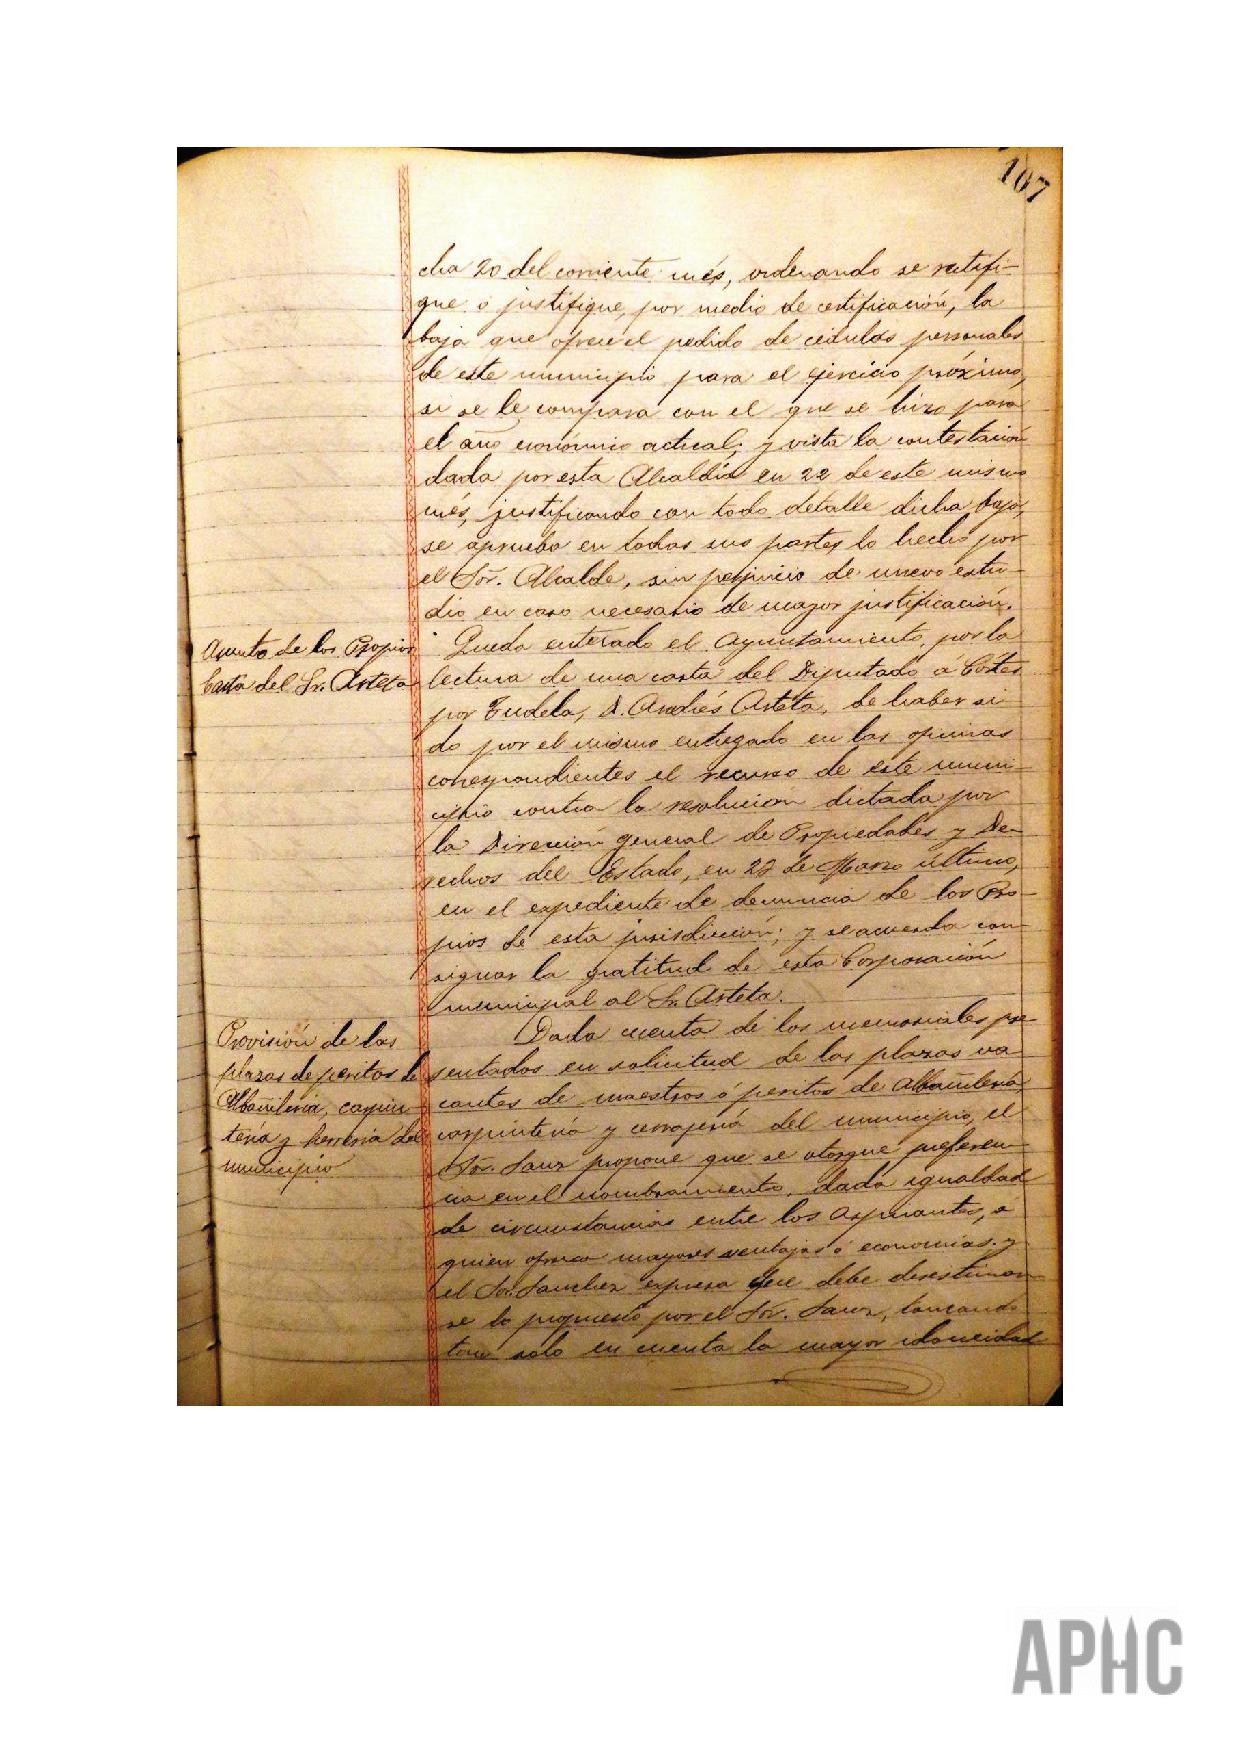 107
cha 20 del corriente més, ordenando se ratifi-
que ó justifique, por medio de certificación, la
baja que ofrece el pedido de cédulas personales
de este municipio para el ejercicio próximo,
si se le compara con el que se hizo para
el año económico actual; y vista la contestación
dada por esta Alcaldía en 22 de este mismo
més, justificando con todo detalle dicha baja,
se aprueba en todas sus partes lo hecho por
el Sor. Alcalde, sin perjuicio de nuevo estu-
dio en caso necesario de mayor justificación.
Asunto de los Propios
Carta del Sr. Arteta
Queda enterado el Ayuntamiento, por la
lectura de una carta del Diputado a Córtes
por Tudela, D. Andrés Arteta, de haber si-
do por el mismo entregado en las oficinas
correspondientes el recurso de este muni-
cipio contra la resolución dictada por
la Dirección general de Propiedades y De-
rechos del Estado, en 22 de Marzo último,
en el expediente de denuncia de los Pro-
pios de esta jurisdicción; y se acuerda con-
signar la gratitud de esta Corporación
municipal al Sr. Arteta.
Provisión de las
plazas de peritos de
Albañilería, carpin-
tería y herrería del
municipio
Dada cuenta de los memoriales pre-
sentados en solicitud de las plazas va-
cantes de maestros ó peritos de Albañilería,
carpintería y cerrajería del municipio, el
Sor. Sanz propone que se otorgue preferen-
cia en el nombramiento, dada igualdad
de circunstancias entre los aspirantes, á
quien ofrezca mayores ventajas ó economías; y
el Sor. Sanchez expresa que debe desestimar-
se lo propuesto por el Sor. Sanz, tomando
tan solo en cuenta la mayor idoneidad
APHC